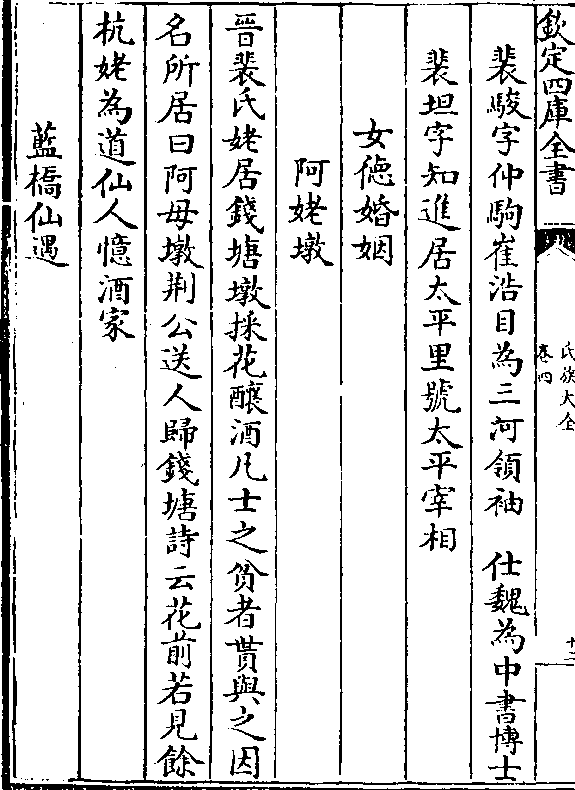 欽定四庫全書
氏族大全
卷四
十二
裴駿字仲駒崔浩目為三河領袖　仕魏為中書博士
裴坦字知進居太平里號太平宰相
女德婚姻
阿姥墩
晉裴氏姥居錢塘墩採花釀酒凡士之貧者貰與之因
名所居曰阿母墩荆公送人歸錢塘詩云花前若見餘
杭姥為道仙人憶酒家
藍橋仙遇